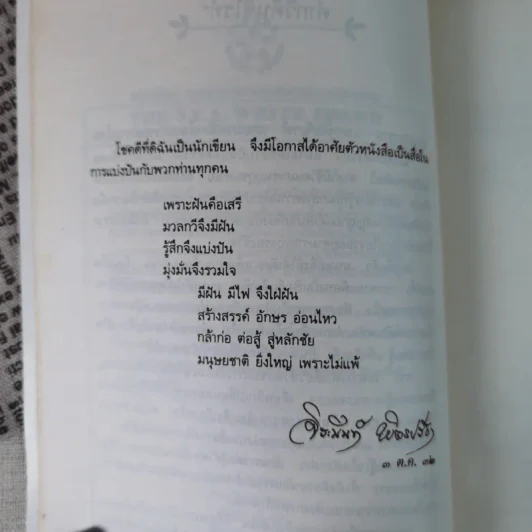 โชคดีที่ดิฉันเป็นนักเขียน จึงมีโอกาสได้อาศัยตัวหนังสือเป็นสื่อใน
การแบ่งปันกับพวกท่านทุกคน
เพราะฝันคือเสรี
มวลกวีจึงมีฝัน
รู้สึกจึงแบ่งปัน
มุ่งมั่นจึงรวมใจ
มีฝัน มีไฟ จึงใฝ่ฝัน
สร้างสรรค์ อักษร อ่อนไหว
กล้าก่อ ต่อสู้ สู่หลักชัย
มนุษยชาติ ยิ่งใหญ่ เพราะไม่แพ้
๓ ต.ค. ๓๒